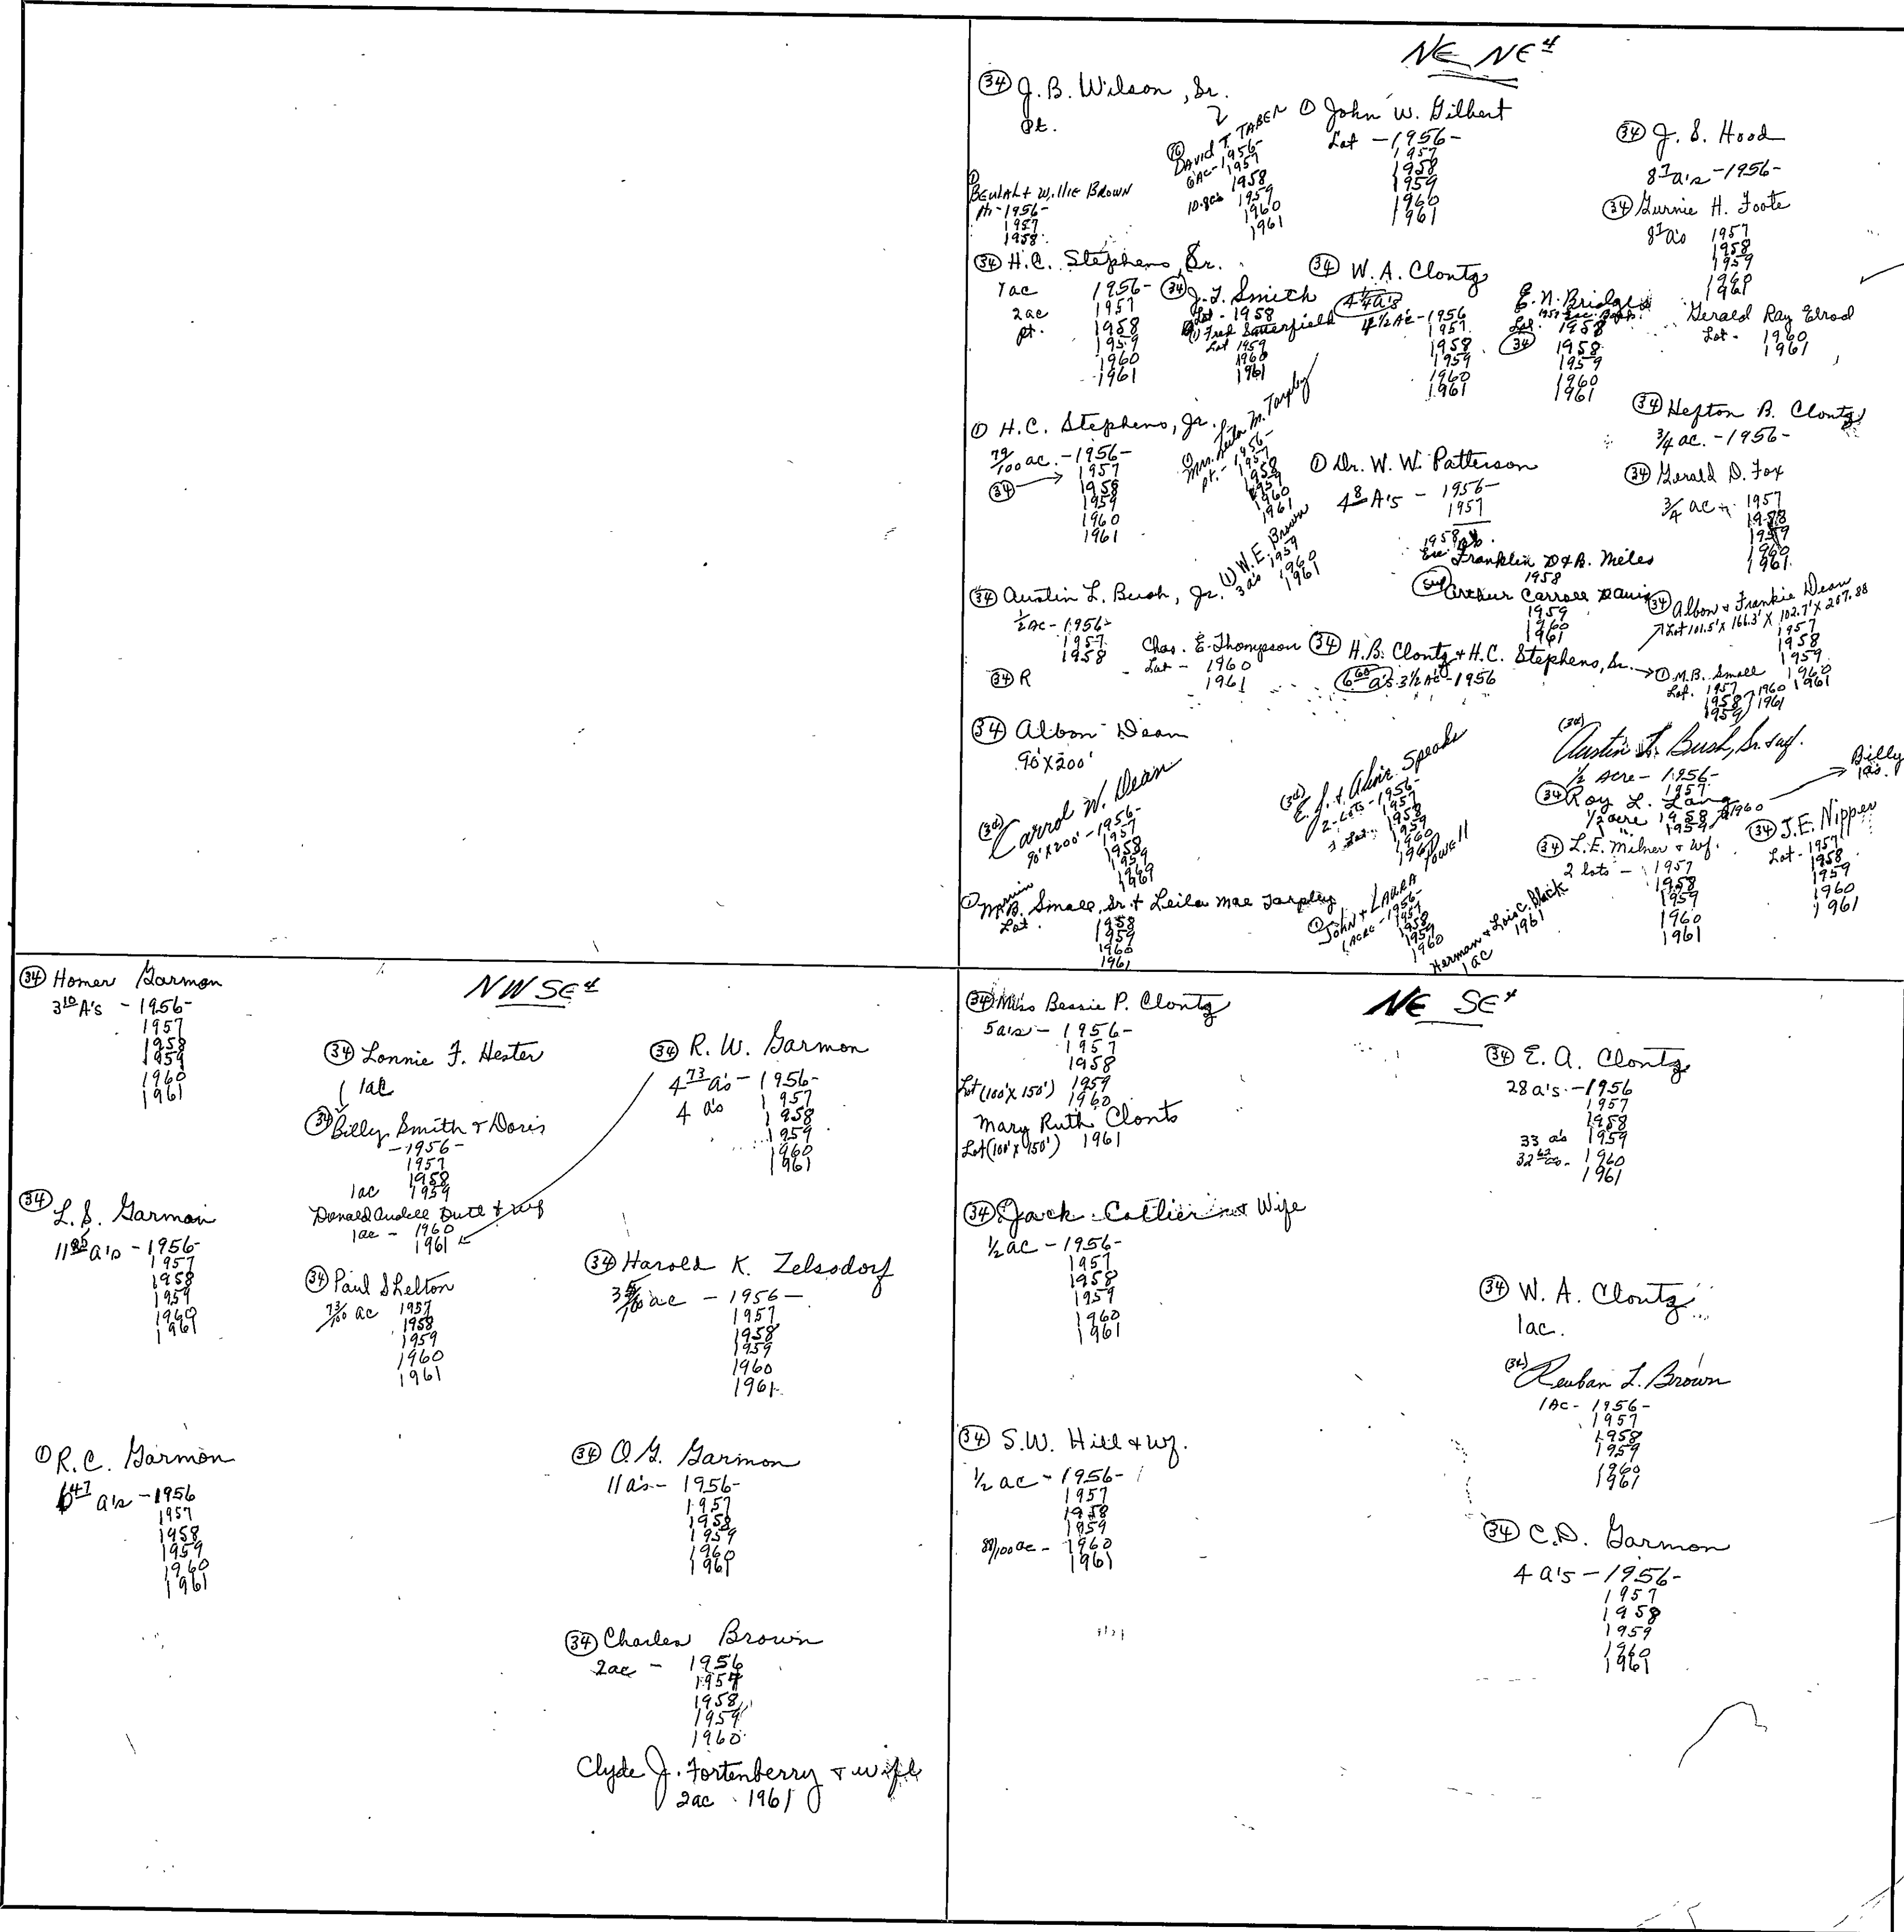 NE NE 4
34 J. B. Wilson, Sr.
Pt.
1 Beulah + Willie Brown
Pt-1956-
1957
1958
16 David T. Taber
6 Ac-1956-
1957
1958
10.8 1959
1960
1961
1 John W. Gilbert
Lot -1956-
1957
1958
1959
1960
1961
34 J. S. Hood
8 a's -1956-
34 Gurnie H. Foote
8 a's 1957
1958
1959
1960
Gerald Ray Elrod
Lot - 1960
1961
34 H.C. Stephens, Sr.
1 ac 1956-
2 ac 1957
pt. 1958
1959
1960
1961
34 J. L. Smith
Lot - 1958
(1) Fred Satterfield
Lot 1959
1960
1961
34 W. A. Clontz
4 1/4 a's
4 1/2 Ac - 1956
1957
1958
1959
1960
1961
E. N. Bridges
Lot. 1958
34 1958
1959
1960
1961
1 H.C. Stephens, Jr.
79/100 ac. -1956-
1957
34 1958
1959
1960
1961
1 Mrs. Leila M. Tarpley
pt. - 1956-
1957
1958
1959
1960
1961
(1) W. E. Brown
3 a's 1959
1960
1961
1 Dr. W. W. Patterson
4 8 A's - 1956-
1957
1958
Franklin D & B. Miles
1958
Arthur Carroll Davis
1959
1960
1961
34 Hefton B. Clontz
3/4 ac. -1956-
34 Gerald D. Fox
3/4 ac - 1957
1958
1959
1960
1961
34 Austin L. Bush, Jr.
1/2 Ac - 1956-
1957
1958
34 R
Chas. E. Thompson
Lot - 1960
1961
34 H.B. Clontz + H.C. Stephens, Sr.
6 60 a's 3 1/2 Ac - 1956
34 Albon + Frankie Dean
Lot 101.5' X 166.3' X 102.7' X 267.88
1957
1958
1959
1960
1961
1 M.B. Small
Lot. 1957
1958 1960
1959 1961
34 Albon Dean
90' X 200'
(34) Carrol W. Dean
90' X 200' - 1956-
1957
1958
1959
1960
(34) E. J. + Alvie Speaks
2-Lots - 1956-
1957
1 Lot 1958
1959
1960
1961
(34) Austin L. Bush, Sr. + wf.
1/2 Acre - 1956-
1957
34 Roy L. Lang
1/2 acre 1958 1960
1959
Billy
34 L. E. Milner + wf.
2 lots - 1957
1958
1959
1960
1961
34 J.E. Nipper
Lot - 1957
1958
1959
1960
1961
1 Marvin B. Small, Sr. + Leila Mae Tarpley
Lot. 1958
1959
1960
1961
1 John + Laura Powell
1 Acre - 1956-
1957
1958
1959
1960
Herman + Lois C. Black
1 ac 1961
NW SE 4
34 Homer Garmon
3 10 A's - 1956-
1957
1958
1959
1960
1961
34 Lonnie F. Hester
1 ac
34 Billy Smith + Doris
-1956-
1957
1958
1 ac 1959
Donald Butt + wf
1 ac - 1960
1961
34 R. W. Garmon
4 73 a's - 1956-
4 a's 1957
1958
1959
1960
1961
34 L. S. Garmon
11 a's - 1956-
1957
1958
1959
1960
1961
34 Paul Shelton
73/100 ac 1957
1958
1959
1960
1961
34 Harold K. Zelsdorf
ac - 1956-
1957
1958
1959
1960
1961
1 R. C. Garmon
6 47 a's - 1956
1957
1958
1959
1960
1961
34 O. G. Garmon
11 a's - 1956-
1957
1958
1959
1960
1961
34 Charles Brown
2 ac - 1956
1957
1958
1959
1960
Clyde J. Fortenberry + wife
2 ac 1961
NE SE 4
34 Miss Bessie P. Clontz
5 a's - 1956-
1957
1958
Lot (100' X 150') 1959
1960
Mary Ruth Clonts
Lot (100' X 150') 1961
34 E. A. Clontz
28 a's - 1956
1957
1958
33 a's 1959
32 62 a's - 1960
1961
34 Jack Collier + Wife
1/2 ac - 1956-
1957
1958
1959
1960
1961
34 W. A. Clontz
1 ac.
(34) Reuban L. Brown
1 Ac - 1956-
1957
1958
1959
1960
1961
34 S.W. Hill + wf.
1/2 ac - 1956-
1957
1958
1959
88/100 ac - 1960
1961
34 C.D. Garmon
4 a's - 1956-
1957
1958
1959
1960
1961